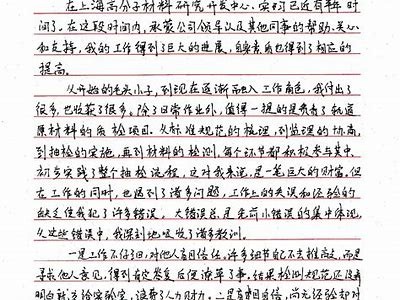 在上海高分子材料研究开发中心、实习已近有半年时
间了。在这段时间内，承蒙公司领导以及其他同事的帮助、关心
和支持，我的工作得到了巨大的进展，自身素质也得到了相应的
提高。
从开始的毛头小子，到现在逐渐融入工作角色，我付出了
很多，也收获了很多。除了日常作业外，值得一提的是参与了轨道
原材料的质检项目。从标准规范的梳理，到监理的协商，
到抽检的实施，再到材料的检测，每个环节都积极参与其中，
初步实践了整个抽检流程，这对我来说，是一笔巨大的财富，但
在工作的同时，也遇到了诸多问题，工作上的失误和经验的
缺乏使我犯了许多错误，大错误总是先前小错误的集中体现，
从这些错误中，我深刻地吸收了诸多教训。
一是工作不仔细，对他人盲目信任，许多细节自己不去推敲，而是
寻求他人意见，得到肯定答复后便潦草了事，结果检测规范还没
明白就去给实验室，浪费了人力财力。二是盲目自信，尚无经验却